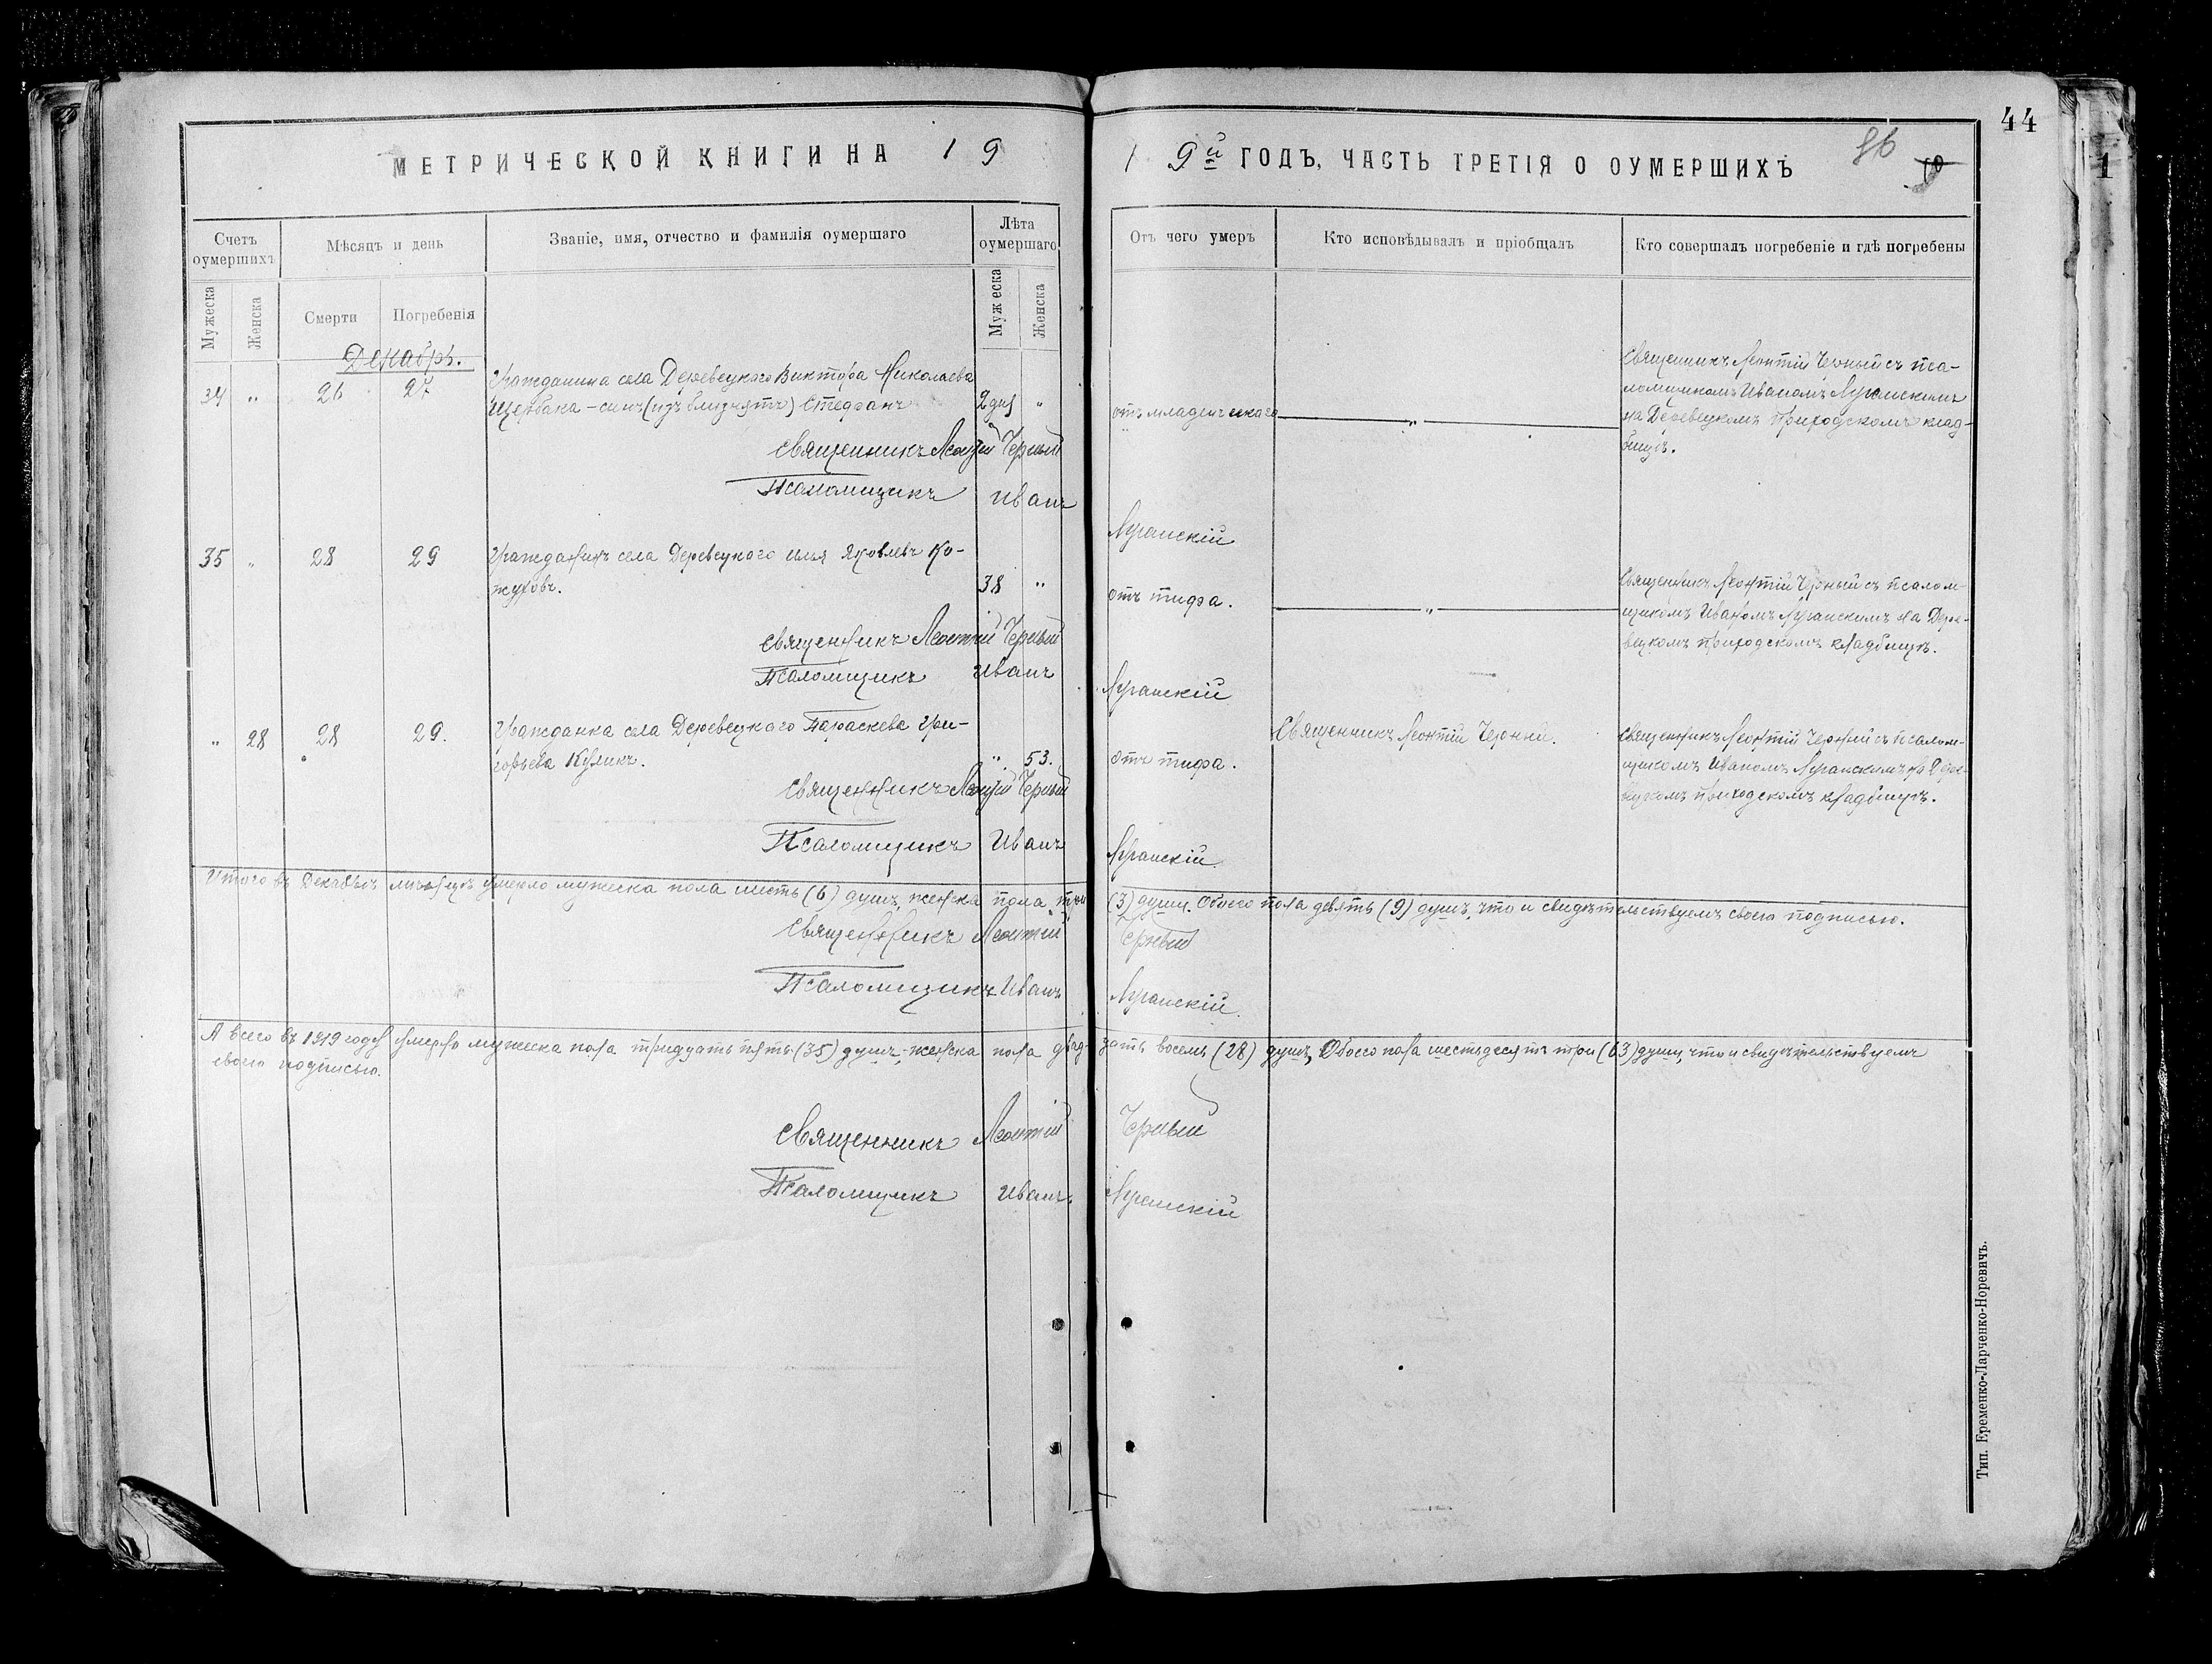 44
МЕТРИЧЕСКОЙ КНИГИ НА 19 19й ГОДЪ, ЧАСТЬ ТРЕТІЯ О ОУМЕРШИХЪ
Счетъ оумершихъ
Мѣсяцъ и день
Званіе, имя, отчество и фамилія оумершаго
Лѣта оумершаго
Отъ чего умеръ
Кто исповѣдывалъ и пріобщалъ
Кто совершалъ погребеніе и гдѣ погребены
Мужеска
Женска
Смерти
Погребенія
Мужеска
Женска
Декабрь.
34 " 26 27
Гражданина села Деревецкого Виктора Николаева
Щербака - сынъ (изъ близнятъ) Стефанъ
2 дня "
отъ младенческаго
"
Священникъ Леонтій Черный съ пса-
ломщикомъ Иваномъ Луганскимъ
на Деревецкомъ приходскомъ клад-
бищѣ.
Священникъ Леонтій Черный
Псаломщикъ Иванъ Луганскій
35 " 28 29
Гражданинъ села Деревецкого Илья Яковлевъ Ко-
жуховъ.
38 "
отъ тифа.
"
Священникъ Леонтій Черный съ псалом-
щикомъ Иваномъ Луганскимъ на Дере-
вецкомъ приходскомъ кладбищѣ.
Священникъ Леонтій Черный
Псаломщикъ Иванъ Луганскій
" 28 28 29.
Гражданка села Деревецкого Параскева Гри-
горьева Куликъ.
" 53.
отъ тифа.
Священникъ Леонтій Черный.
Священникъ Леонтій Черный съ псалом-
щикомъ Иваномъ Луганскимъ на Дере-
вецкомъ приходскомъ кладбищѣ.
Священникъ Леонтій Черный
Псаломщикъ Иванъ Луганскій.
Итого въ Декабрѣ мѣсяцѣ умерло мужеска пола шесть (6) душъ, женска пола три (3) души. Обоего пола девять (9) душъ, что и свидѣтельствуемъ своею подписью.
Священникъ Леонтій Черный
Псаломщикъ Иванъ Луганскій.
А всего въ 1919 году умерло мужеска пола тридцать пять (35) душъ, женска пола двад-цать восемь (28) душъ, Обоего пола шестьдесятъ три (63) души, что и свидѣтельствуемъ
своею подписью.
Священникъ Леонтій Черный
Псаломщикъ Иванъ Луганскій
Тип. І. Еременко-Ларченко-Норевичъ.